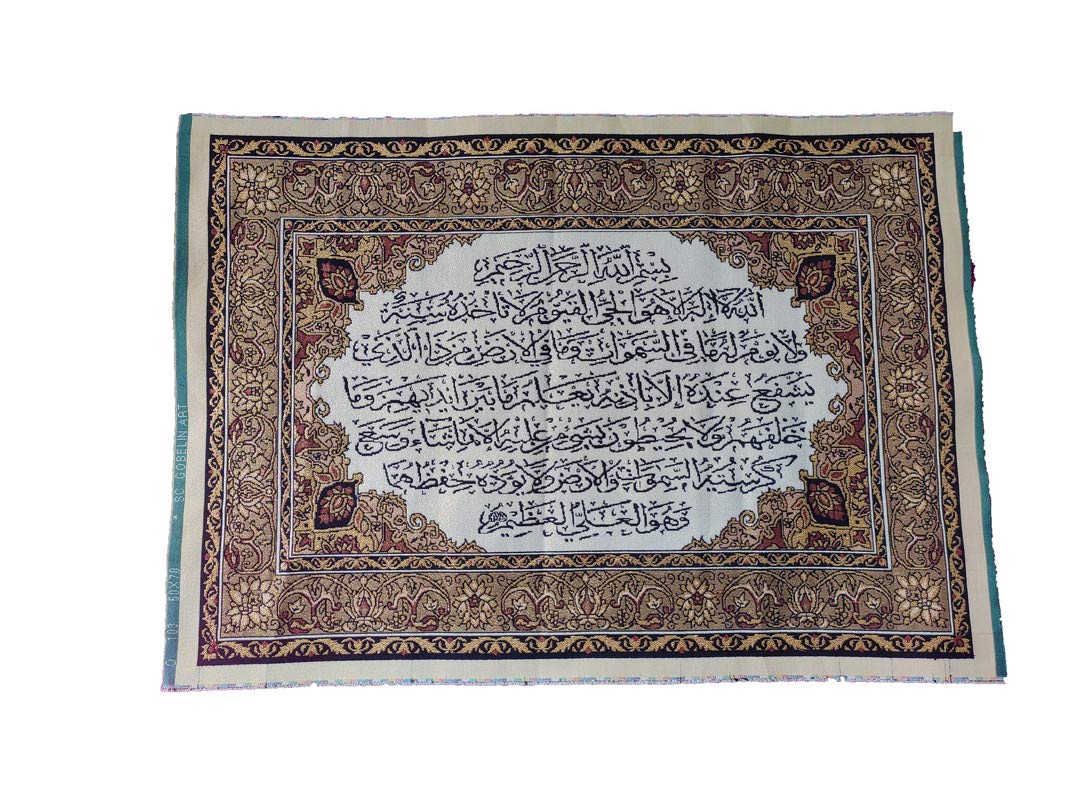 بِسْمِ اللَّهِ الرَّحْمَنِ الرَّحِيمِ
اللَّهُ لَا إِلَهَ إِلَّا هُوَ الْحَيُّ الْقَيُّومُ لَا تَأْخُذُهُ سِنَةٌ
وَلَا نَوْمٌ لَهُ مَا فِي السَّمَوَاتِ وَمَا فِي الْأَرْضِ مَنْ ذَا الَّذِي
يَشْفَعُ عِنْدَهُ إِلَّا بِإِذْنِهِ يَعْلَمُ مَا بَيْنَ أَيْدِيهِمْ وَمَا
خَلْفَهُمْ وَلَا يُحِيطُونَ بِشَيْءٍ مِنْ عِلْمِهِ إِلَّا بِمَا شَاءَ وَسِعَ
كُرْسِيُّهُ السَّمَوَاتِ وَالْأَرْضَ وَلَا يَئُودُهُ حِفْظُهُمَا
وَهُوَ الْعَلِيُّ الْعَظِيمُ
Q 103 50X70 * SC GOBELIN ART